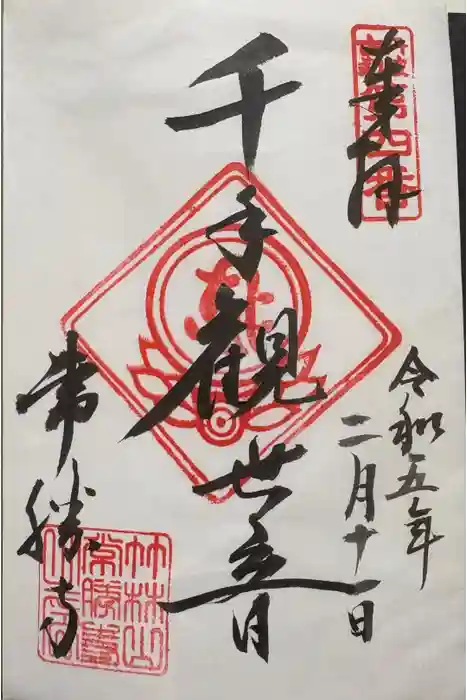 奉拝
令和五年
二月十一日
千手観世音
常勝寺
竹林山
常勝